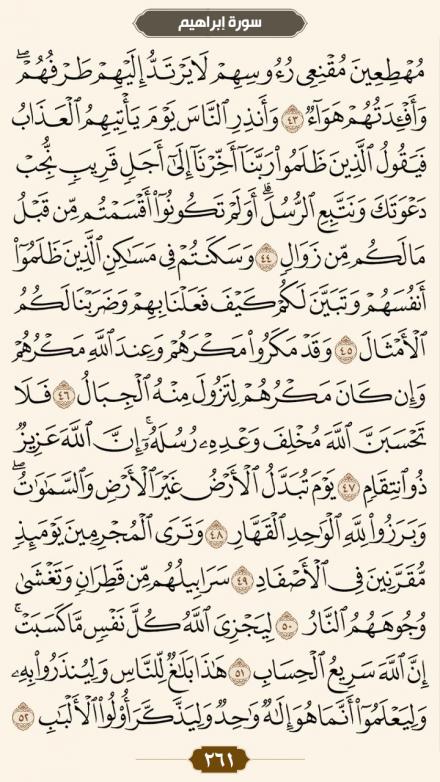 سورة إبراهيم
مُهْطِعِينَ مُقْنِعِى رُءُوسِهِمْ لَا يَرْتَدُّ إِلَيْهِمْ طَرْفُهُمْ ۖ
وَأَفْـِٔدَتُهُمْ هَوَآءٌ ٤٣ وَأَنذِرِ ٱلنَّاسَ يَوْمَ يَأْتِيهِمُ ٱلْعَذَابُ
فَيَقُولُ ٱلَّذِينَ ظَلَمُوا۟ رَبَّنَآ أَخِّرْنَآ إِلَىٰٓ أَجَلٍ قَرِيبٍ نُّجِبْ
دَعْوَتَكَ وَنَتَّبِعِ ٱلرُّسُلَ ۗ أَوَلَمْ تَكُونُوٓا۟ أَقْسَمْتُم مِّن قَبْلُ
مَا لَكُم مِّن زَوَالٍ ٤٤ وَسَكَنتُمْ فِى مَسَـٰكِنِ ٱلَّذِينَ ظَلَمُوٓا۟
أَنفُسَهُمْ وَتَبَيَّنَ لَكُمْ كَيْفَ فَعَلْنَا بِهِمْ وَضَرَبْنَا لَكُمُ
ٱلْأَمْثَالَ ٤٥ وَقَدْ مَكَرُوا۟ مَكْرَهُمْ وَعِندَ ٱللَّهِ مَكْرُهُمْ
وَإِن كَانَ مَكْرُهُمْ لِتَزُولَ مِنْهُ ٱلْجِبَالُ ٤٦ فَلَا
تَحْسَبَنَّ ٱللَّهَ مُخْلِفَ وَعْدِهِۦ رُسُلَهُۥٓ ۗ إِنَّ ٱللَّهَ عَزِيزٌ
ذُو ٱنتِقَامٍ ٤٧ يَوْمَ تُبَدَّلُ ٱلْأَرْضُ غَيْرَ ٱلْأَرْضِ وَٱلسَّمَـٰوَٰتُ ۖ
وَبَرَزُوا۟ لِلَّهِ ٱلْوَٰحِدِ ٱلْقَهَّارِ ٤٨ وَتَرَى ٱلْمُجْرِمِينَ يَوْمَئِذٍ
مُّقَرَّنِينَ فِى ٱلْأَصْفَادِ ٤٩ سَرَابِيلُهُم مِّن قَطِرَانٍ وَتَغْشَىٰ
وُجُوهَهُمُ ٱلنَّارُ ٥٠ لِيَجْزِىَ ٱللَّهُ كُلَّ نَفْسٍ مَّا كَسَبَتْ ۚ
إِنَّ ٱللَّهَ سَرِيعُ ٱلْحِسَابِ ٥١ هَـٰذَا بَلَـٰغٌ لِّلنَّاسِ وَلِيُنذَرُوا۟ بِهِۦ
وَلِيَعْلَمُوٓا۟ أَنَّمَا هُوَ إِلَـٰهٌ وَٰحِدٌ وَلِيَذَّكَّرَ أُو۟لُوا۟ ٱلْأَلْبَـٰبِ ٥٢
٢٦١